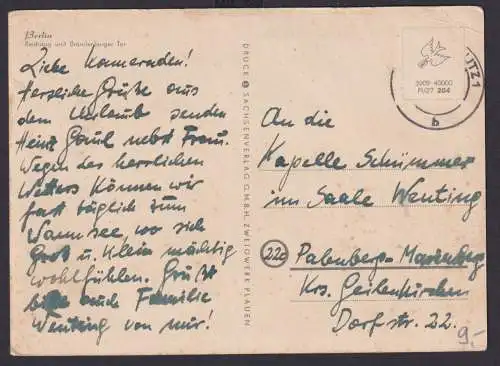 Berlin
Reichstag und Brandenburger Tor
Liebe Kameraden!
Herzliche Grüße aus
dem Urlaub senden
Heinz Gaul nebst Frau.
Wegen des herrlichen
Wetters können wir
fast täglich zum
Wannsee, wo sich
Groß u. Klein mächtig
wohlfühlen. Grüßt
bitte auch Familie
Wenting von mir!
DRUCK SACHSENVERLAG G.M.B.H. ZWEIGWERK PLAUEN
3909 40000
PU27 204
UTZ 1
b
An die
Kapelle Schümmer
im Saale Wenting
22c
Palenberg-Marienberg
Krs. Geilenkirchen
Dorfstr. 22.
9.-